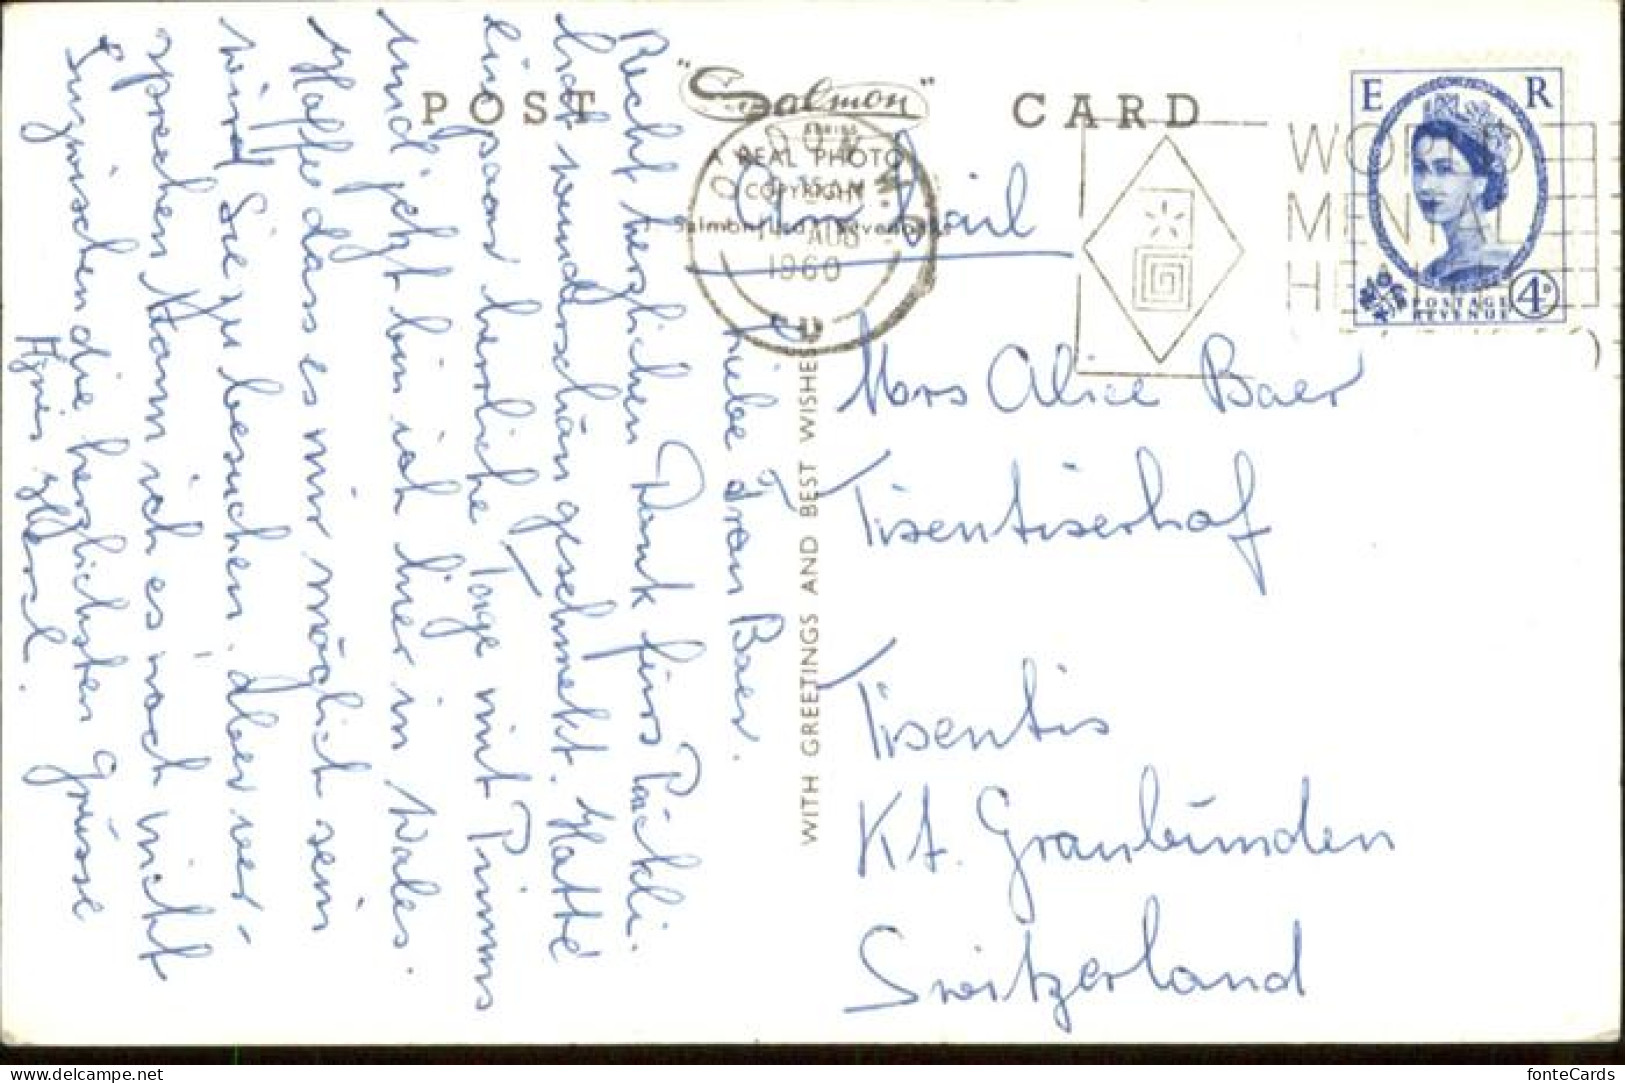 POST "Salmon" CARD
SERIES
A REAL PHOTO
COPYRIGHT
Salmon Ltd. Sevenoaks
AUG
1960
WORLD
MENTAL
HEALTH
E R
POSTAGE
REVENUE
4D
Air Mail
Mrs Alice Baer
Tisentiserhof
Tisentis
Kt. Graubünden
Switzerland
WITH GREETINGS AND BEST WISHES
Liebe Frau Baer.
Recht herzlichen Dank fürs Päckli.
hat wunderschön geschmekt. Hatte
ein paar herrliche Tage mit Primus
und jetzt bin ich hier in Wales.
Hoffe dass es mir möglich sein
wird Sie zu besuchen. Aber ver-
sprechen kann ich es noch nicht
Inzwischen die herzlichsten Grüsse
Agnes
fonteCards
www.delcampe.net